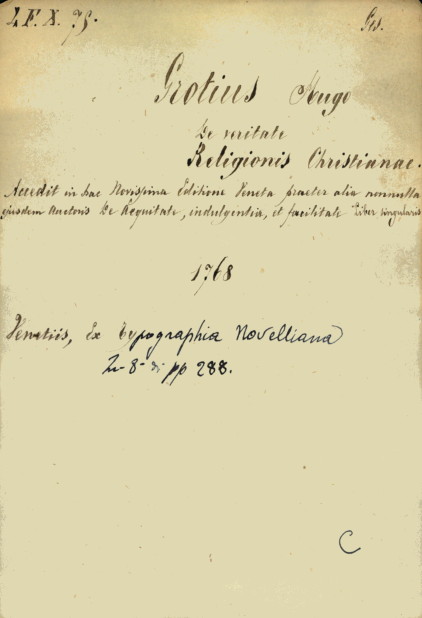 4. F. X. 75.
Grotius Hugo
De veritate
Religionis Christianae.
Accedit in hac Novissima Editione Veneta praeter alia nonnulla
ejusdem Auctoris De Aequitate, indulgentia, et facilitate Liber singularis
1768
Venetiis, Ex Typographia Novelliana
In-8- di pp 288.
C